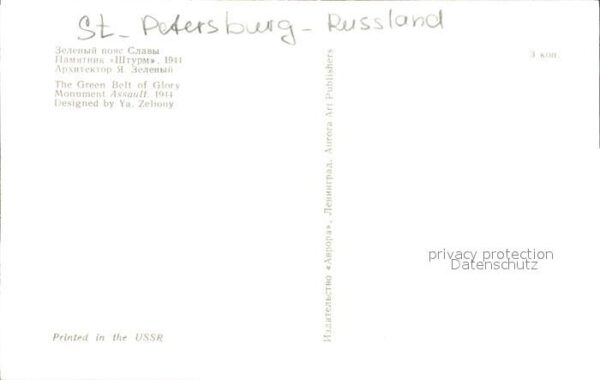 St_ Petersburg - Russland
Зеленый пояс Славы
Памятник «Штурм». 1944
Архитектор Я. Зеленый
The Green Belt of Glory
Monument Assault. 1944
Designed by Ya. Zeliony
3 коп.
Издательство «Аврора». Ленинград. Aurora Art Publishers
privacy protection
Datenschutz
Printed in the USSR